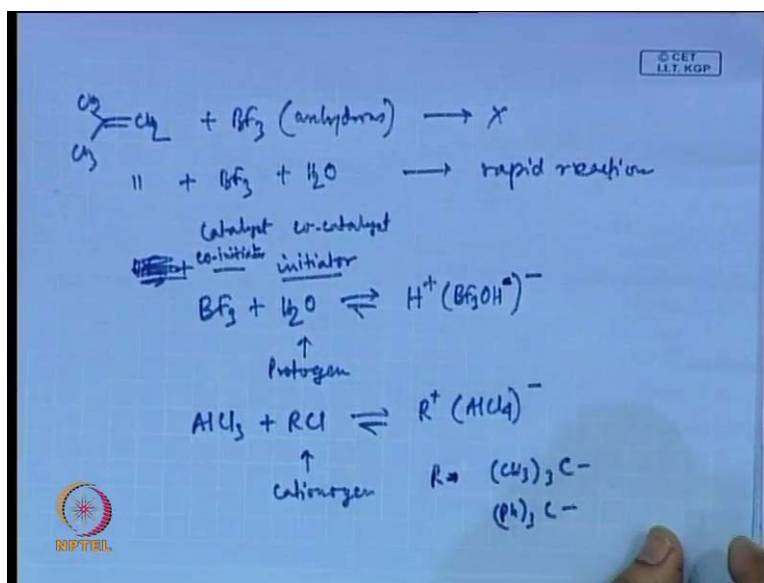 © CET
I.I.T. KGP
CH3
CH3
=CH2 + BF3 (anhydrous) → X
" + BF3 + H2O → rapid reaction
catalyst co-catalyst
co-initiator initiator
BF3 + H2O ⇌ H+ (BF3OH)−
↑
Protogen
AlCl3 + RCl ⇌ R+ (AlCl4)−
↑
Cationogen
R→ (CH3)3 C−
(Ph)3 C−
NPTEL